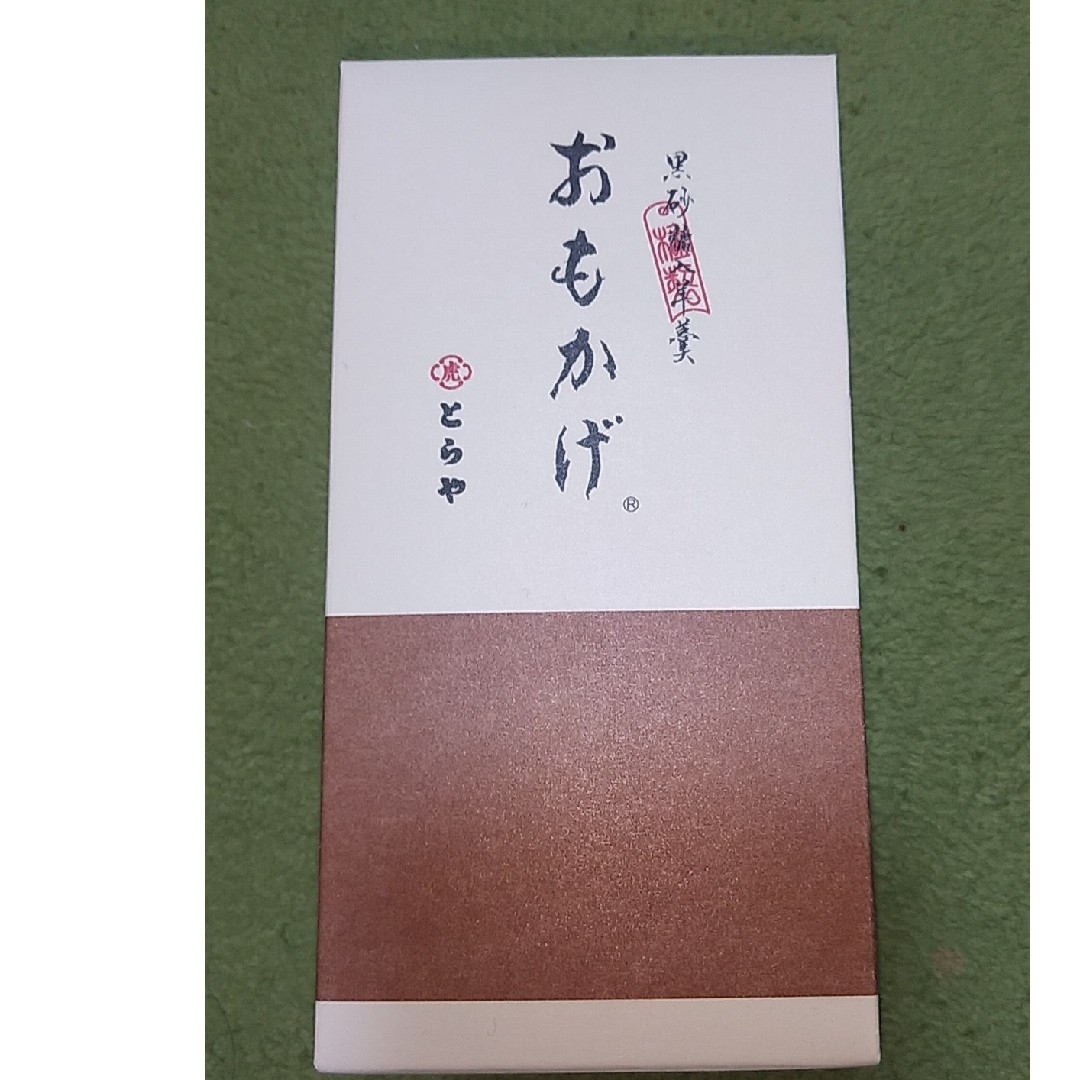 黒砂糖入羊羹
おもかげ®
虎
とらや